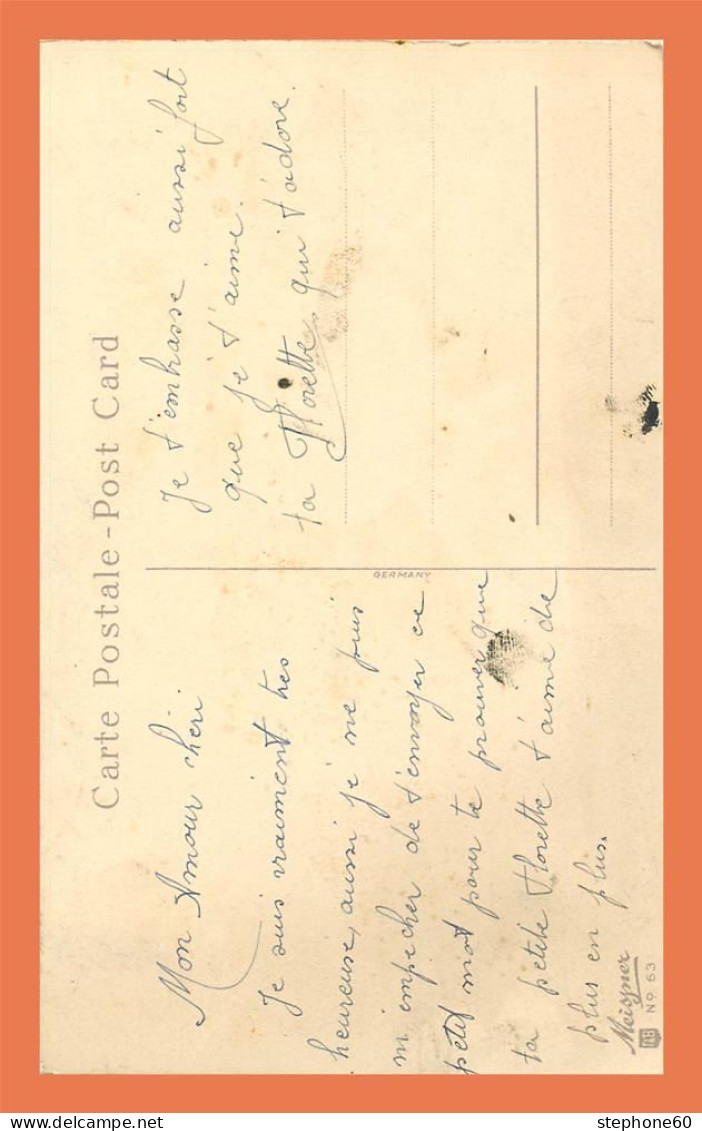 Carte Postale - Post Card
Mon Amour chéri
Je suis vraiment très
heureuse, aussi je ne puis
m'empêcher de t'envoyer ce
petit mot pour te prouver que
ta petite Florette t'aime de
plus en plus.
Je t'embrasse aussi fort
que je t'aime.
ta Florette, qui t'adore.
GERMANY
Meissner
No 53
stephone60